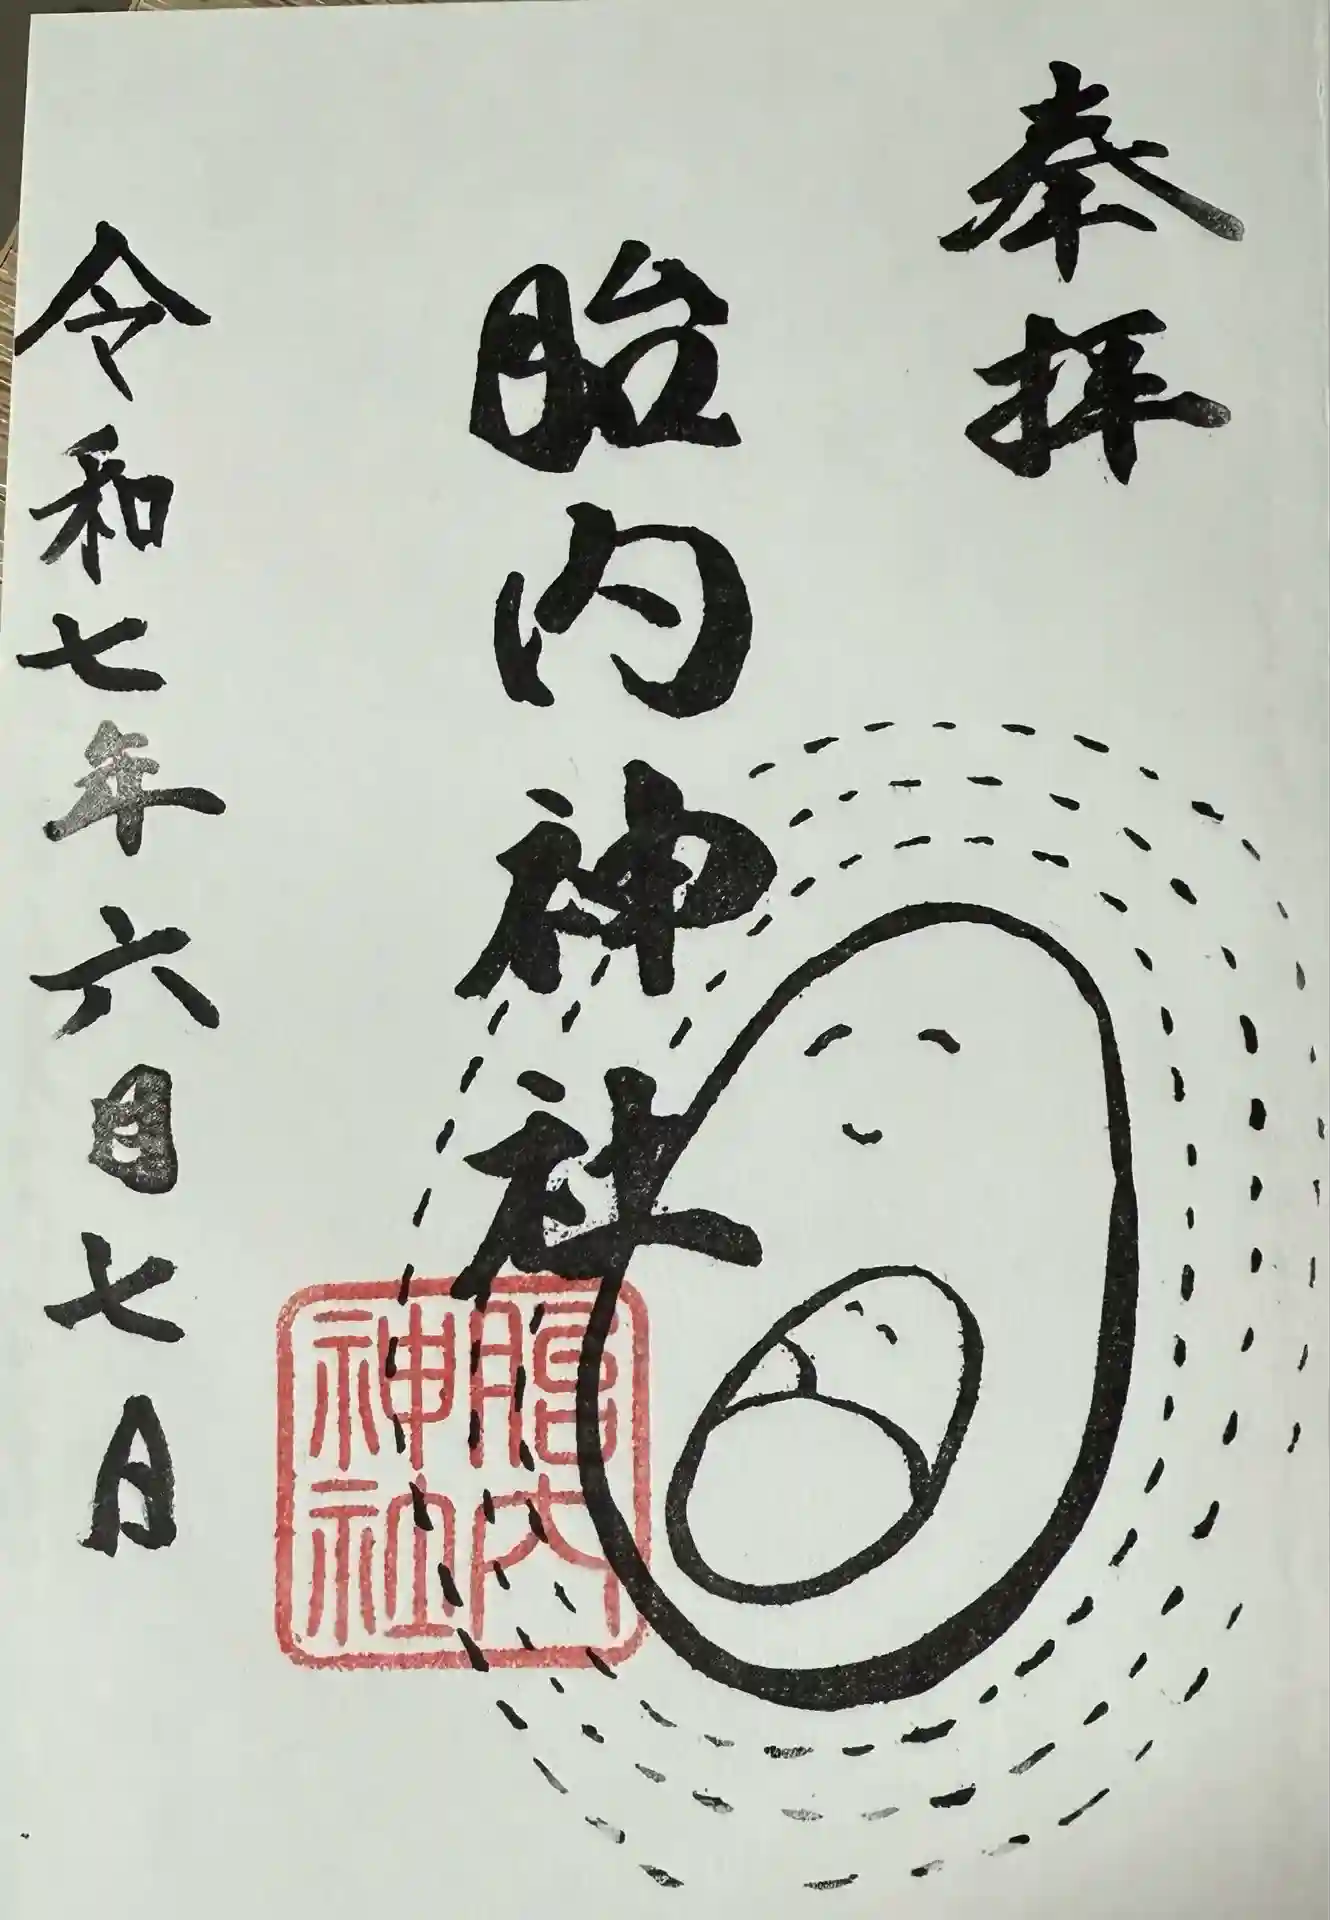 奉拝
胎内神社
令和七年六月七日
胎内
神社